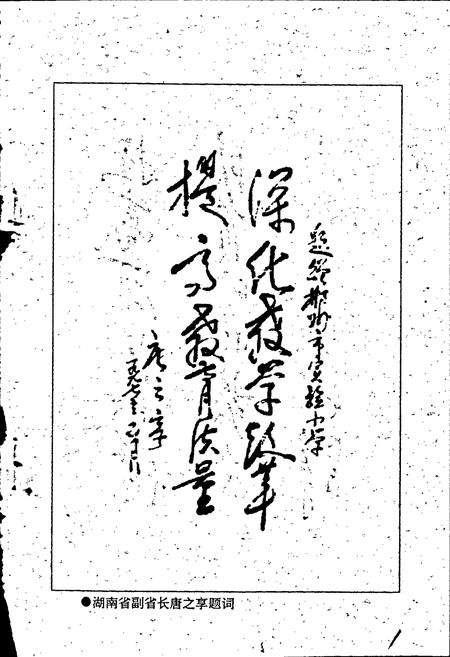 题给郴州市实验小学
深化教学改革
提高教育质量
唐之享
●湖南省副省长唐之享题词